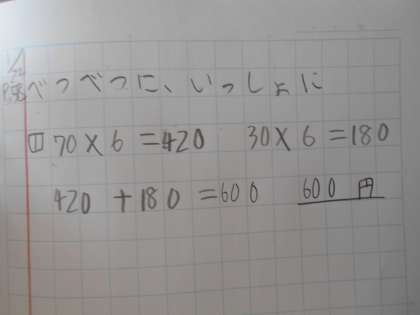 べつべつに、いっしょに
1 70×6=420 30×6=180
420+180=600 600円